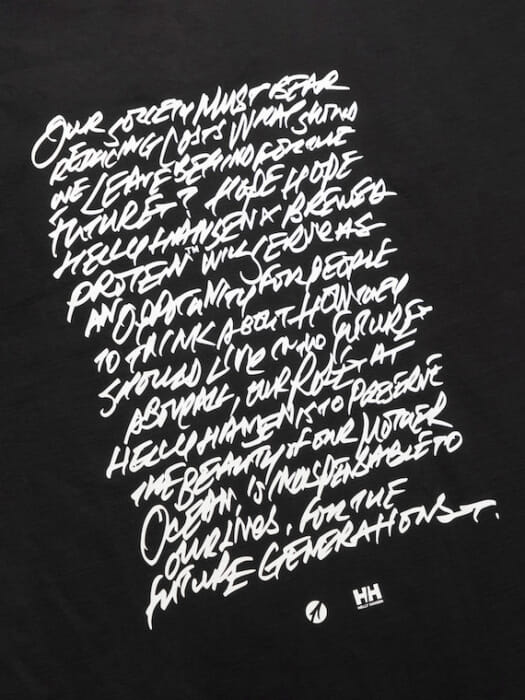 OUR SOCIETY MUST BEAR
REDUCING COSTS WHAT SHOULD
WE LEAVE BEHIND FOR THE
FUTURE? HOPE HOPE
HELLY HANSEN X BREWED
PROTEIN™ WILL SERVE AS
AN OPPOTUNITY FOR PEOPLE
TO THINK ABOUT HOW THEY
SHOULD LIVE IN THE FUTURE
ABOVE ALL, OUR ROLE AT
HELLY HANSEN IS TO PRESERVE
THE BEAUTY OF OUR MOTHER
OCEAN, IS INDISPENSABLE TO
OUR LIVES, FOR THE
FUTURE GENERATIONS.
HH
HELLY HANSEN